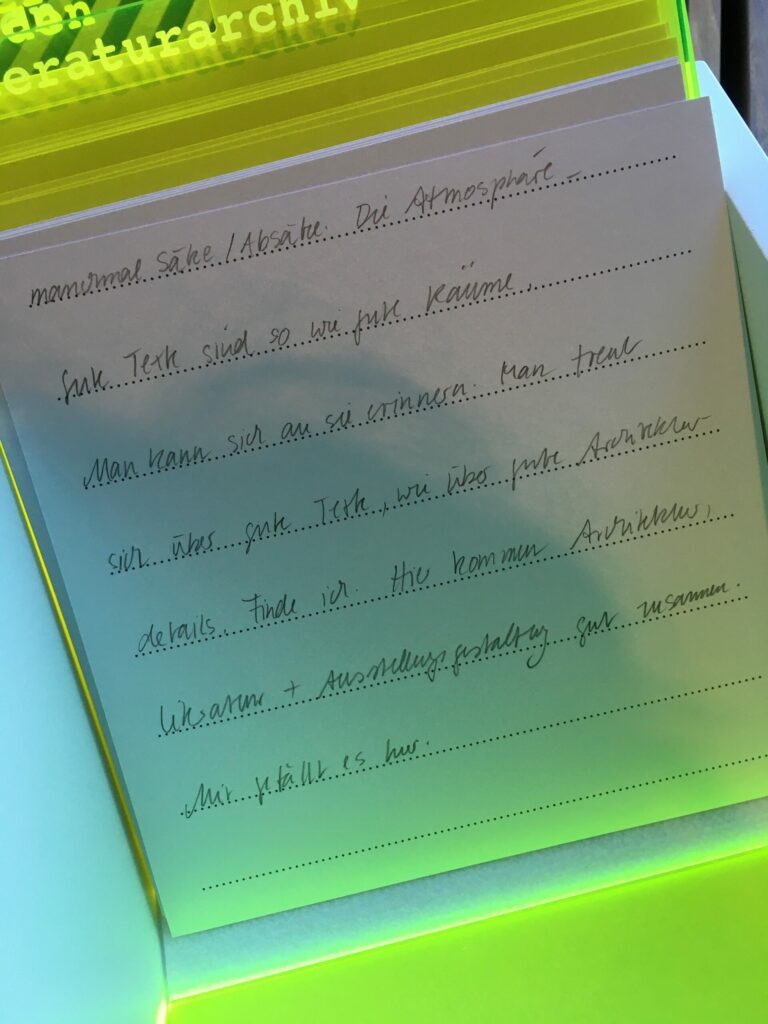 den
eraturarchiv
manchmal Sätze / Absätze. Die Atmosphäre –
Gute Texte sind so wie gute Räume.
Man kann sich an sie erinnern. Man freut
sich über gute Texte, wie über gute Architektur-
details. Finde ich. Hier kommen Architektur,
Literatur + Ausstellungsgestaltung gut zusammen.
Mir gefällt es hier.